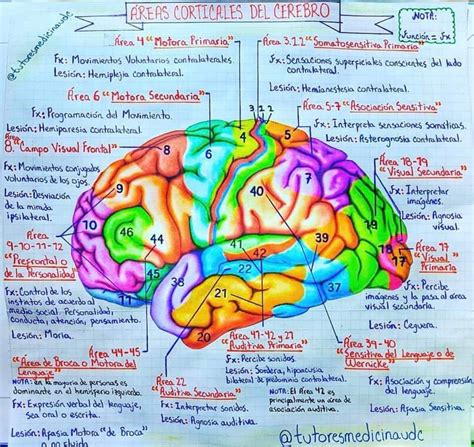 ÁREAS CORTICALES DEL CEREBRO
NOTA:
Función = fx
@tutoresmedicinaudc
Área 4 "Motora Primaria"
fx: Movimientos Voluntarios contralaterales.
Lesión: Hemiplejia contralateral.
Área 6 "Motora Secundaria"
fx: Programación del Movimiento.
Lesión: Hemiparesia contralateral.
Área
8 "Campo Visual Frontal"
fx: Movimientos conjugados
voluntarios de los ojos.
Lesión: Desviación
de la mirada
ipsilateral.
Área
9-10-11-12
"Prefrontal o
de la Personalidad"
fx: Control de los
instintos de acuerdo al
medio social. Personalidad,
conducta, atención, pensamiento.
Lesión: Moria.
Área 44-45
"Área de Broca o Motora del
Lenguaje"
NOTA: en la mayoría de personas es
dominante en el hemisferio izquierdo.
fx: Expresión verbal del lenguaje,
sea oral o escrita.
Lesión: Afasia Motora "de Broca"
o no fluida
Área 3,1,2 "Somatosensitiva Primaria"
fx: Sensaciones superficiales conscientes del lado
contralateral.
Lesión: Hemianestesia contralateral.
Área 5-7 "Asociación Sensitiva"
fx: Interpreta sensaciones somáticas.
Lesión: Asterognosia contralateral.
Área 18-19
"Visual
Secundaria"
fx: Interpretar
imágenes.
Lesión: Agnosia
visual.
Área 17
"Visual
Primaria"
fx: Percibe
imágenes y la pasa al área
visual secundaria.
Lesión: Ceguera.
Área 39-40
"Sensitiva del Lenguaje o de
Wernicke"
fx: Asociación y comprensión
del lenguaje.
Lesión: Afasia
Área 41-42 y 27
"Auditiva Primaria"
fx: Percibe sonidos.
Lesión: Sordera, hipoacusia
bilateral de predominio contralateral.
NOTA: El Área 42 es
principalmente un área de
asociación auditiva.
Área 22
"Auditiva Secundaria"
fx: Interpretar sonidos.
Lesión: Agnosia auditiva.
@tutoresmedicinaudc
3 1 2
8
6
4
5
7
9
40
10
46
44
45
11
41
42
22
21
20
39
37
19
18
17